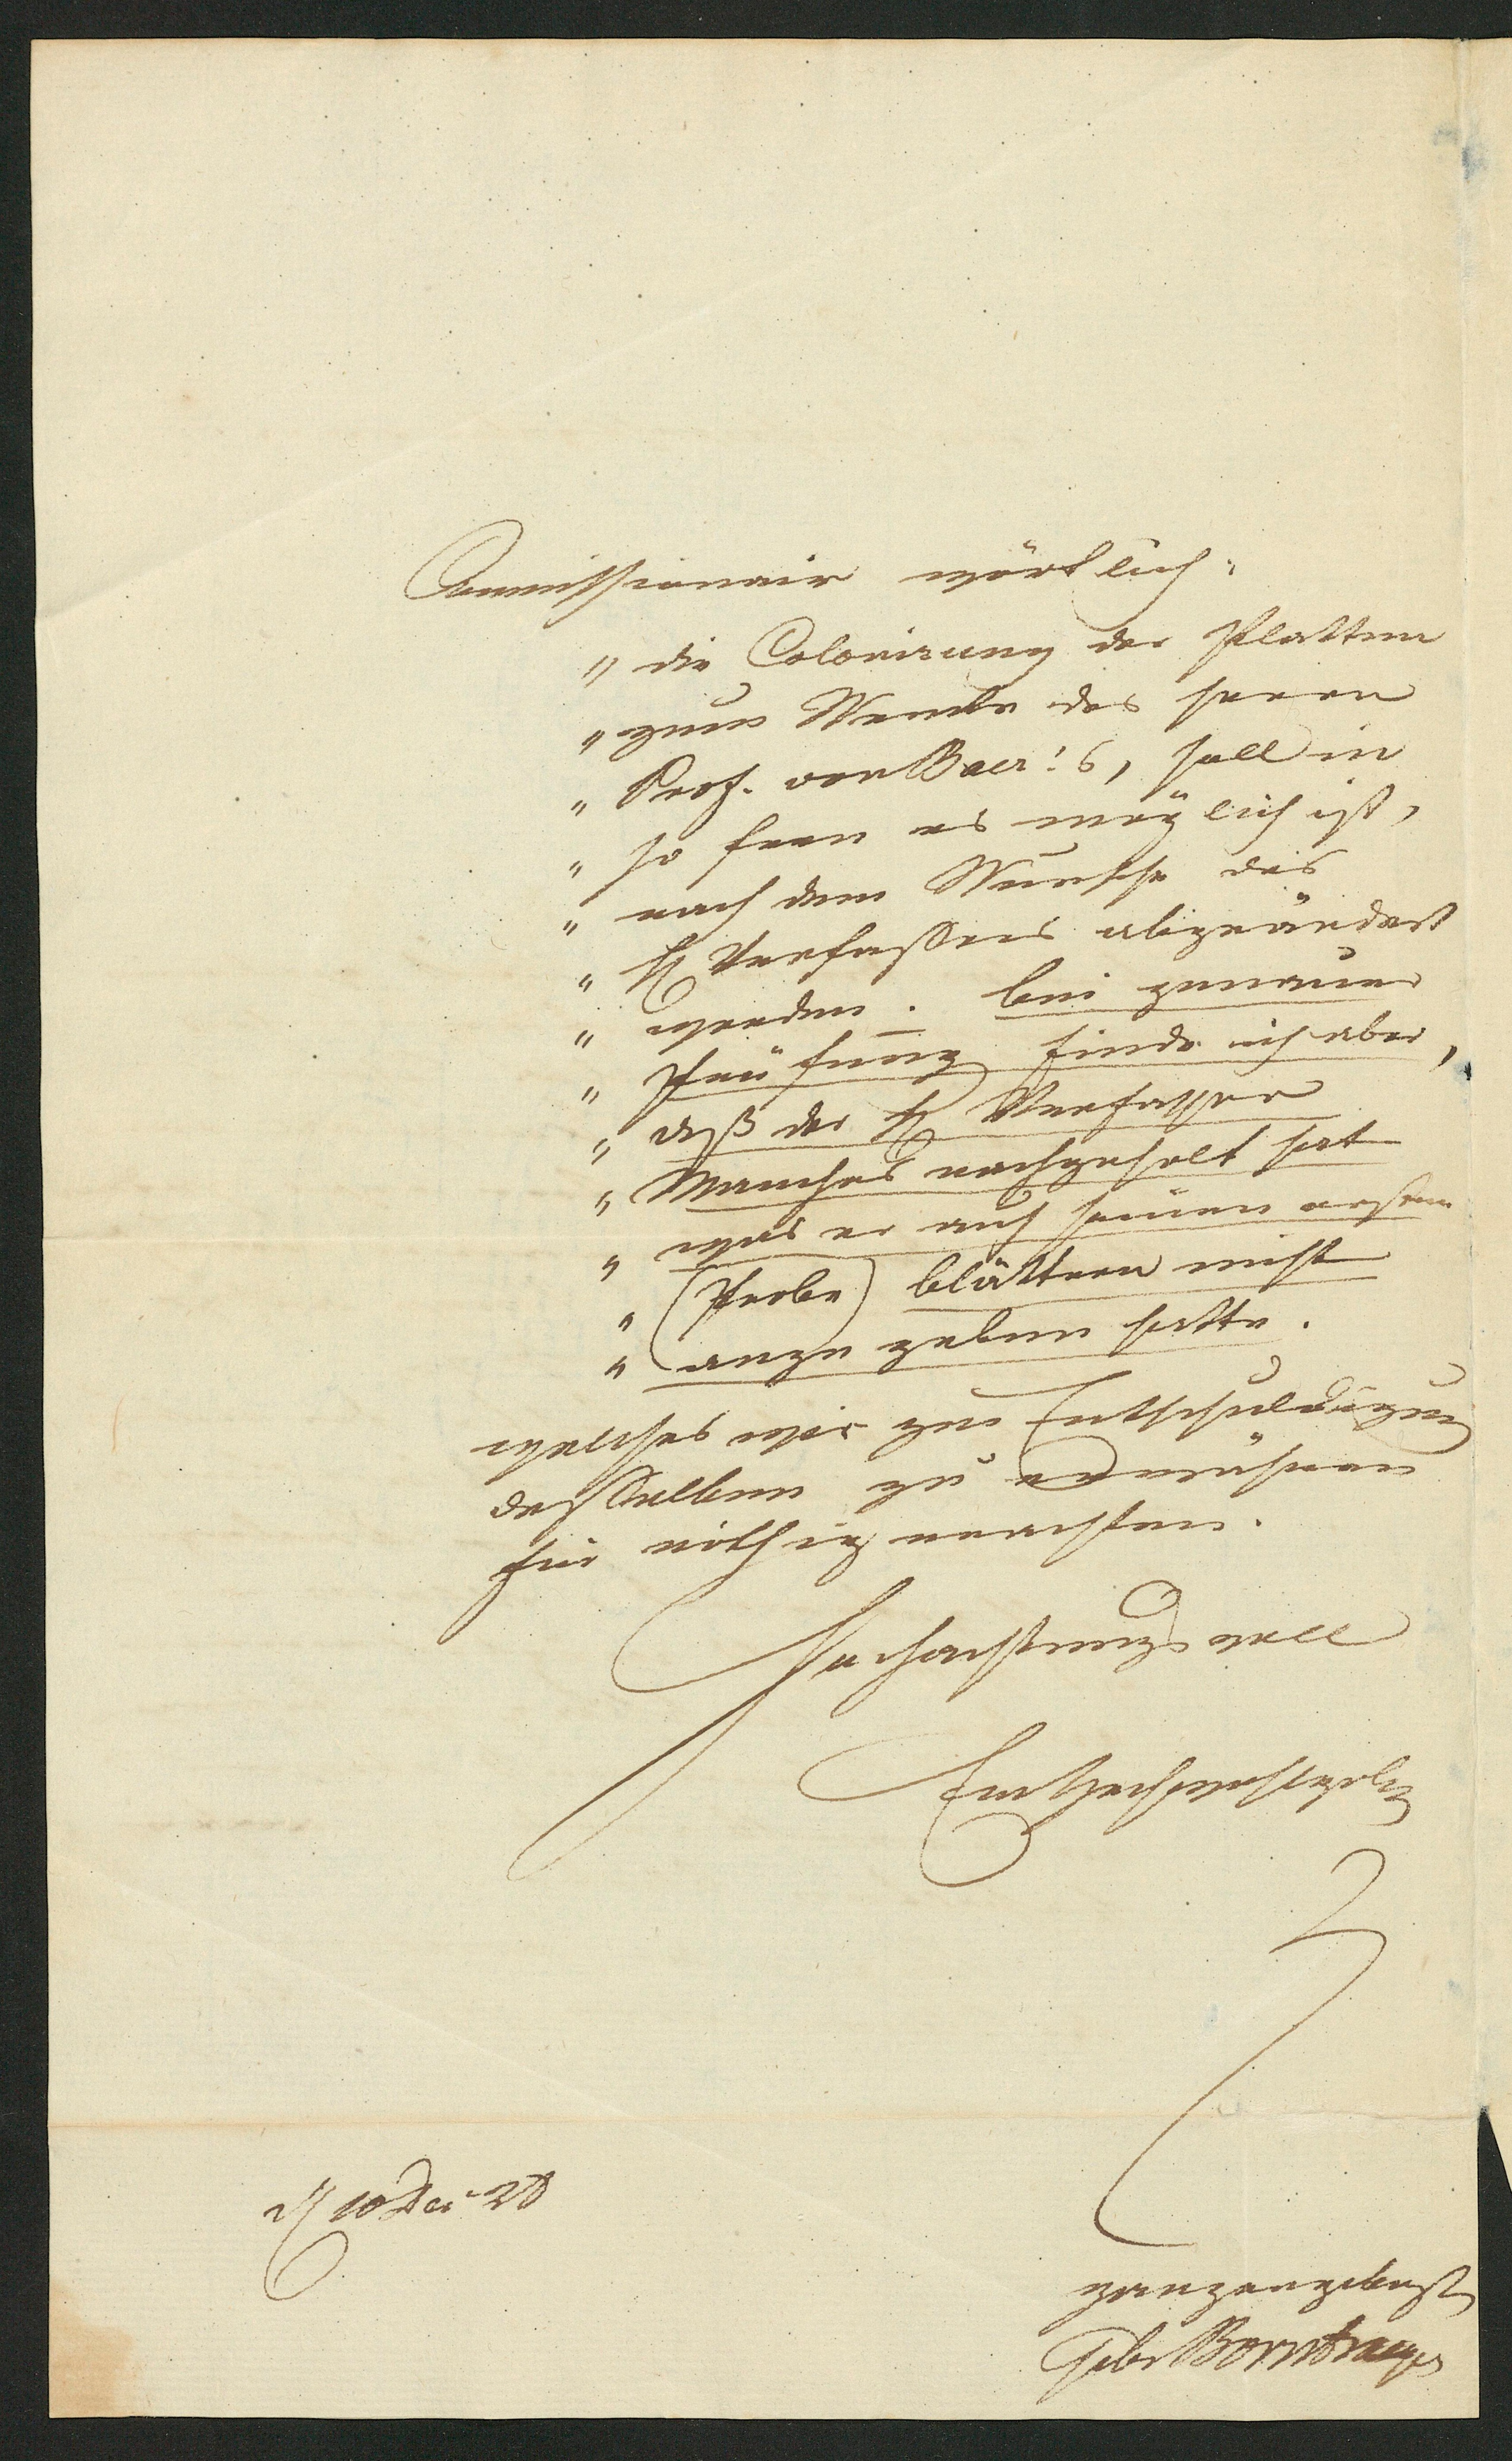 Commissionair wörtlich:
" die Colorirung der Platten
" zum Werke des Herrn
" Prof. von Baer's, soll in
" so fern es möglich ist,
" nach dem Wunsche des
" H Verfassers abgeändert
" werden. bei genauer
" Prüfung finde ich aber,
" daß der H Verfasser
" Manches nachgeholt hat
" was er auf seinen ersten
" (Probe) blättern nicht
" ange geben hatte.
welches wir zur Entschuldigung
desselben zu erwähnen
für nöthig erachten.
Hochachtungsvoll
Ew Hochwohlgeb
10 Dec 28
ganz ergebenst
Gebr Borntraeger